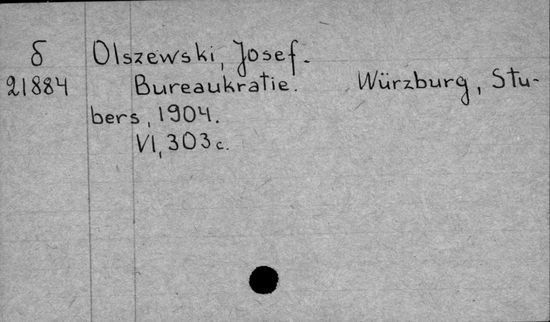 δ Olszewski, Josef.
21884 Bureaukratie. Würzburg, Stu-
bers, 1904.
VI, 303 c.